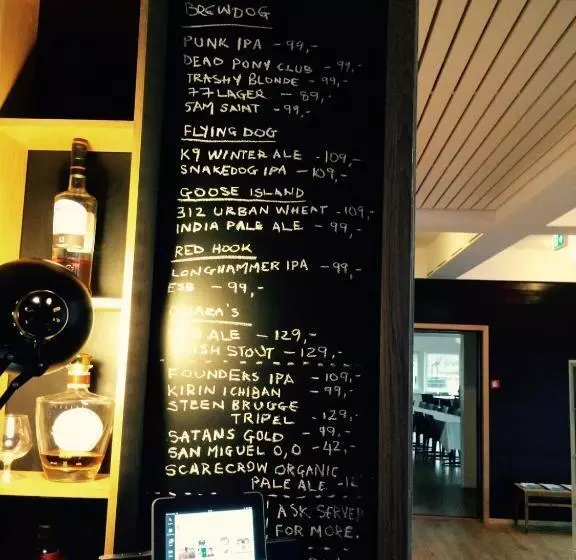 BREWDOG
PUNK IPA - 99,-
DEAD PONY CLUB - 99,-
TRASHY BLONDE - 99,-
77 LAGER - 89,-
5AM SAINT - 99,-
FLYING DOG
K9 WINTER ALE - 109,-
SNAKEDOG IPA - 109,-
GOOSE ISLAND
312 URBAN WHEAT - 109,-
INDIA PALE ALE - 99,-
RED HOOK
LONGHAMMER IPA - 99,-
ESB - 99,-
ALE - 129,-
STOUT - 129,-
FOUNDERS IPA - 109,-
KIRIN ICHIBAN - 99,-
STEEN BRUGGE
TRIPEL - 129,-
SATANS GOLD - 99,-
SAN MIGUEL 0,0 - 42,-
SCARECROW ORGANIC
PALE ALE - 12
ASK SERVER
FOR MORE.